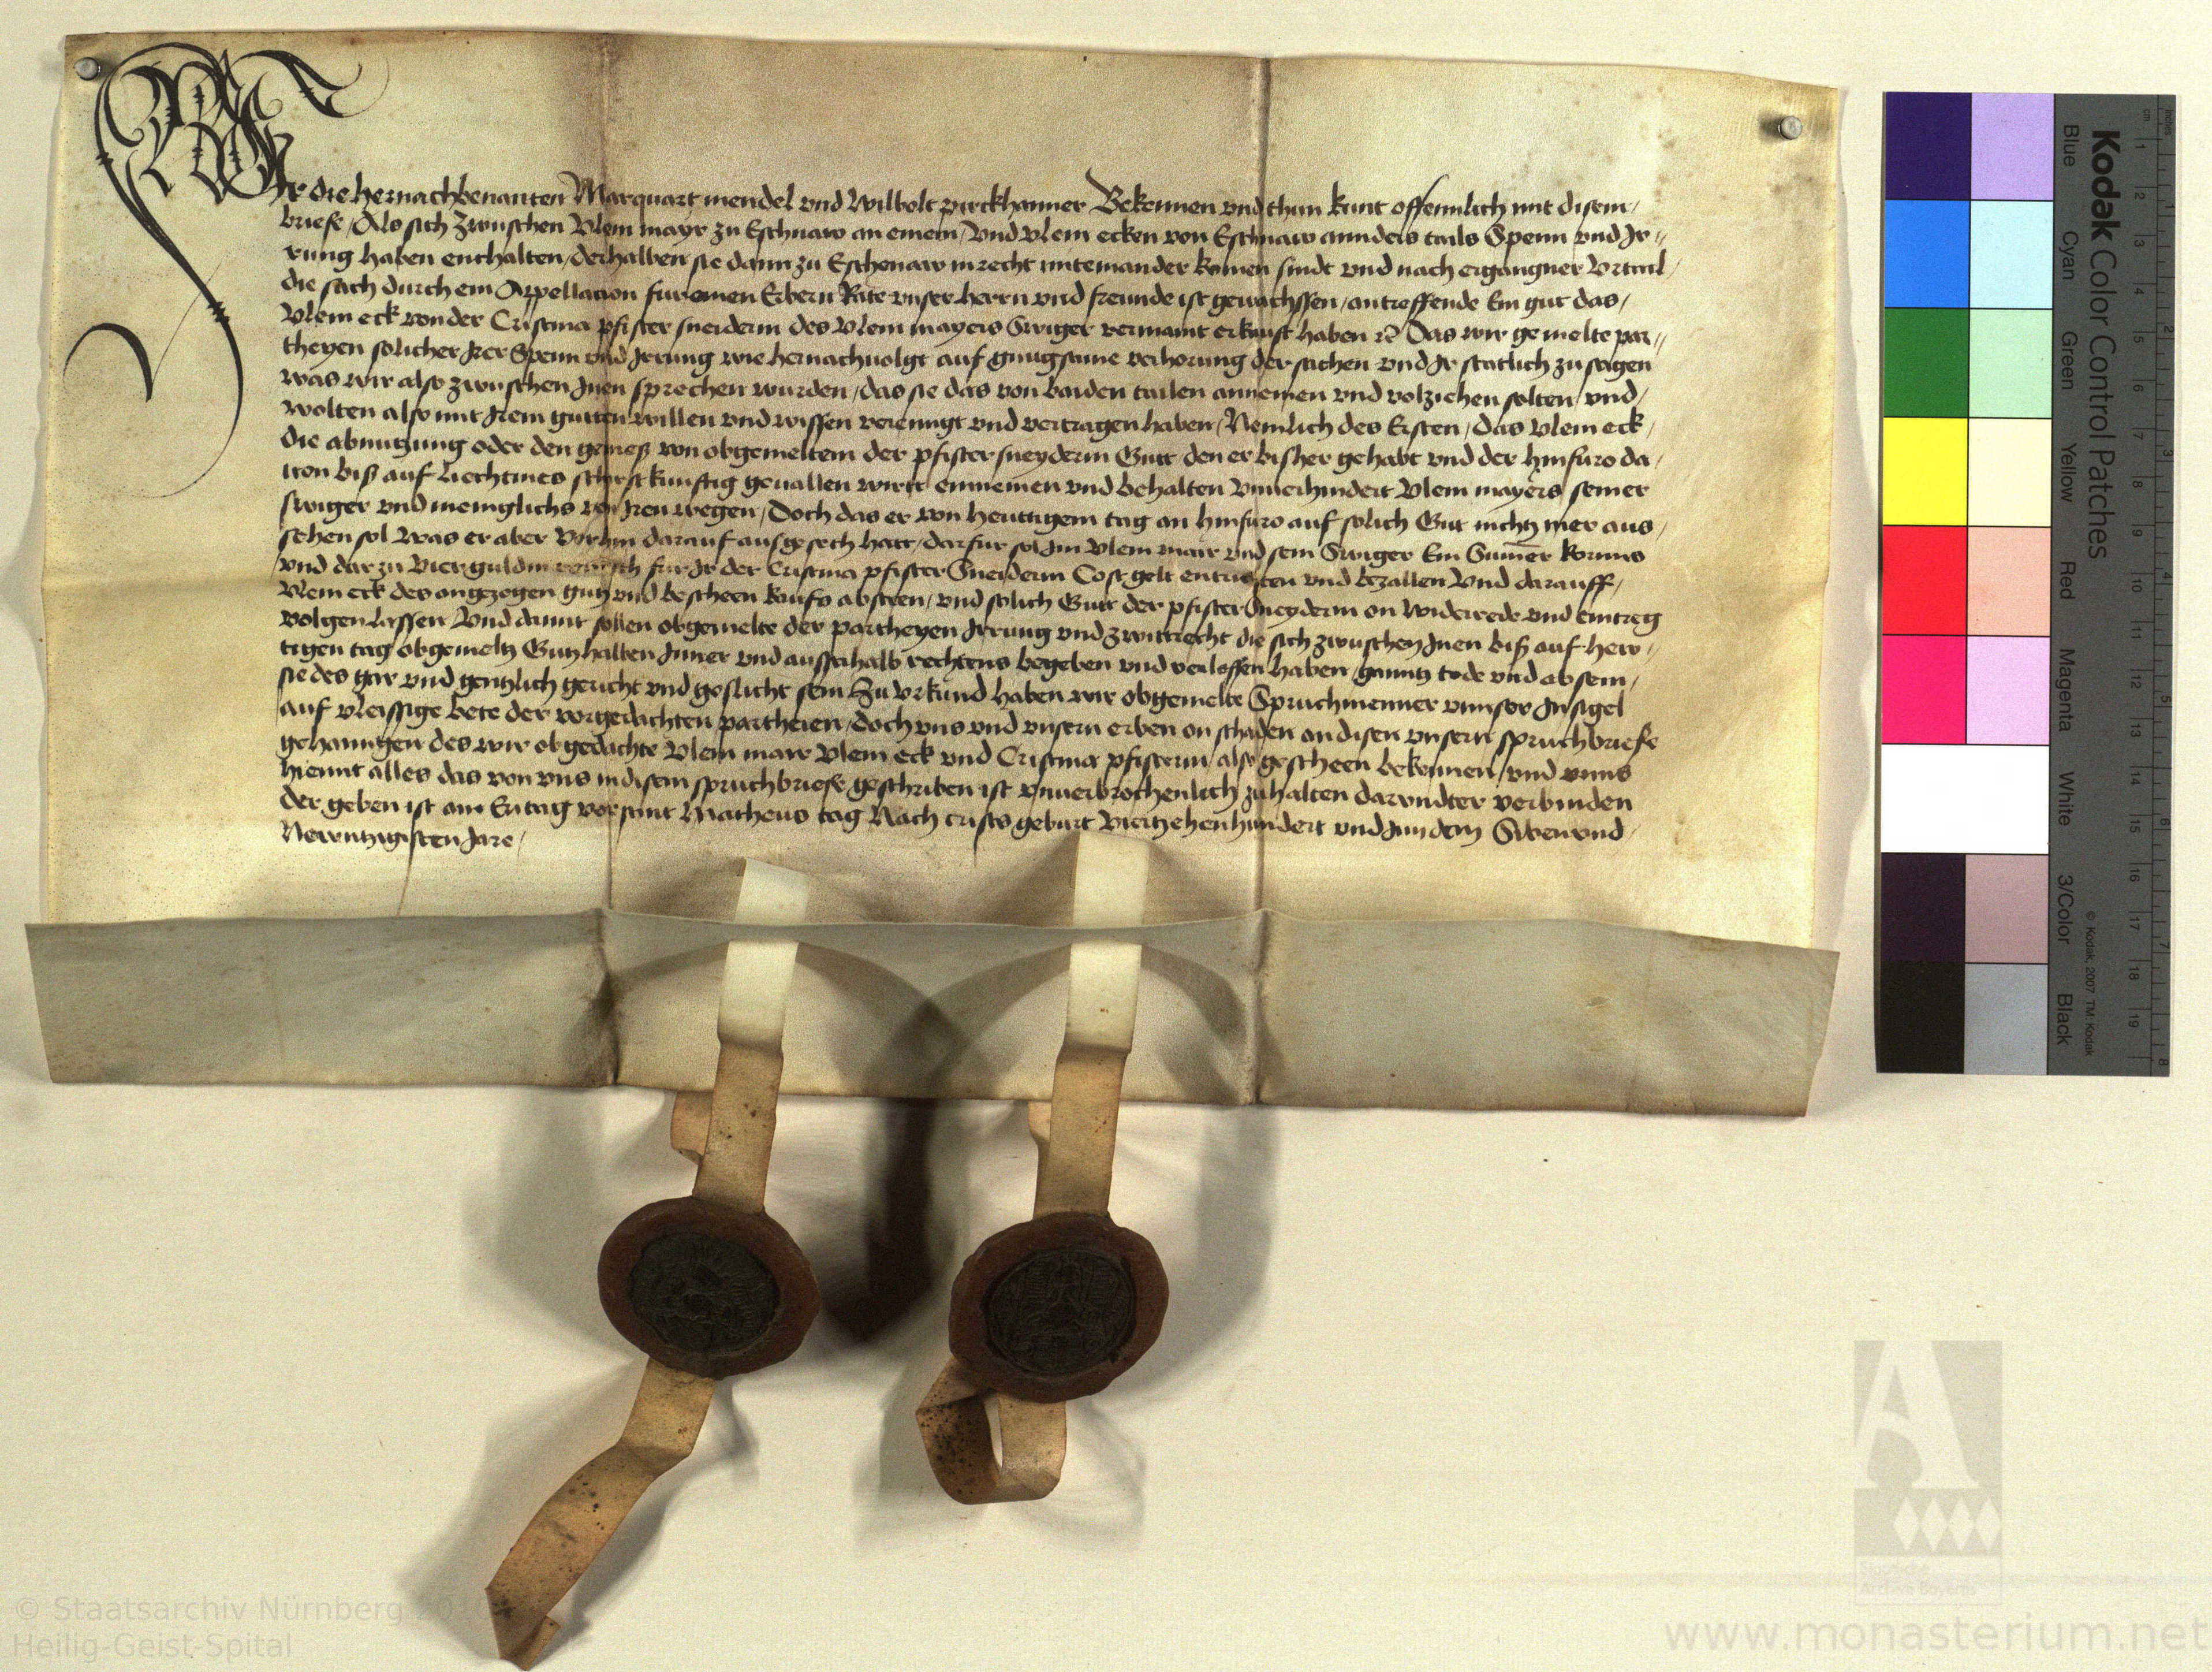 Wir die hernachbenanten Marquart mendel vnd Wilbolt pirckhamer Bekennen vnd thun kunt offennlich mit disem
briefe / Als sich zwuschen Vlein mayr zu Eschnaw an einem / Vnd vlein ecken von Eschnaw annders tails Spenn vnd Ir=
rung haben enthalten / derhalben sie dann zu Eschenaw in recht miteinander komen sindt vnd nach ergangner Vrtail /
die sach durch ein Appellacion fur einen Erbern Rate vnser herrn vnd freunde ist gewachssen / antreffende Ein gut das /
Vlein eck von der Cristina pfister sneiderin des Vlein mayers Swiger vermaint erkauft haben Das wir gemelte par=
theyen solicher Irer Spenn vnd Irrung wie hernachuolgt auf gnugsame verhorung der sachen vnd Ir statlich zu sagen
was wir also zwuschen Inen sprechen wurden / das sie das von baiden tailen annemen vnd volziehen solten vnd /
wolten also mit Irem gutten willen vnd wissen vereinigt vnd vertragen haben / Nemlich des Ersten / das Vlein eck /
die abnutzung oder den genieß von obgemeltem der pfister sneyderin Gutt den er bisher gehabt vnd der hinfuro da /
uon biß auf liechtmes schirst kunftig geuallen wirtt einnemen vnd behalten vnuerhindert Vlein mayers seiner
swiger vnd meniglichs von Iren wegen / Doch das er von heuttigem tag an hinfuro auf solich Gut nichtz mer aus /
sehen sol Was er aber vorhin darauf ausgeseeh hatt / darfur sol Im Vlein mair vnd sein Swiger Ein Sumer korns
vnd dar zu Vier guldin reinisch fur Ir der Cristina pfister Sneiderin Cost gelt entrichten vnd bezallen Vnd darauff /
Vlein eck des angezogen gutz vnd bescheen kaufs absteen / vnd solich Gutt der pfister Sneyderin on widerrede vnd eintreg
volgen lassen Vnd damit sollen obgemelte der partheyen Irrung vnd zwittrecht die sich zwuschen Inen biß auf hew=
tigen tag obgemeltz Gutz halben Inner vnd ausserhalb rechtens begeben vnd verloffen haben ganntz tode vnd ab sein /
sie des gar vnd gentzlich gericht vnd geslicht sein Zu Vrkund haben wir obgemelte Spruchmenner vnnser Insigel
auf vleissige bete der vorgedachten partheien / doch vns vnd vnsern erben on schaden an disen vnsern spruchbriefe
gehanngen des wir obgedachte Vlein mair Vlein eck vnd Cristina pfisterin also gescheen bekennen / vnd vnns
hiemit alles das von vns in disem spruchbriefe geschriben ist vnuerbrochenlich zuhalten darvndter verbinden
Der geben ist am Eritag vor sant Matheus tag Nach crists geburt Viertzehenhundert vnd Inn dem Siben vnd /
Newntzigisten Jare /
Kodak Color Control Patches
Blue Cyan Green Yellow Red Magenta White 3/Color Black
© Kodak, 2007 TM: Kodak
cm 1 2 3 4 5 6 7 8 9 10 11 12 13 14 15 16 17 18 19
inches 1 2 3 4 5 6 7 8
© Staatsarchiv Nürnberg
Heilig-Geist-Spital
www.monasterium.net